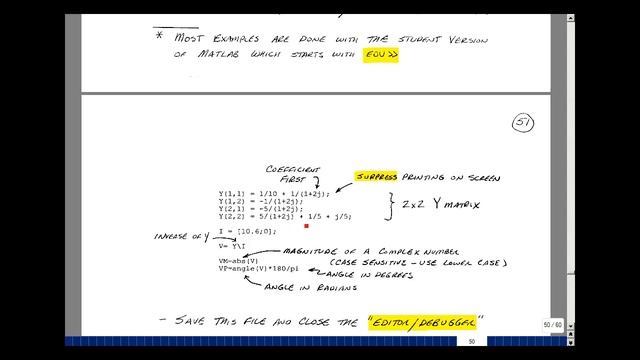 * MOST EXAMPLES ARE DONE WITH THE STUDENT VERSION
OF MATLAB WHICH STARTS WITH EDU>>
51
COEFFICIENT
FIRST
SUPRESS PRINTING ON SCREEN
Y(1,1) = 1/10 + 1/(1+2j);
Y(1,2) = -1/(1+2j);
Y(2,1) = -5/(1+2j);
Y(2,2) = 5/(1+2j) + 1/5 + j/5;
2x2 Y MATRIX
I = [10.6;0];
INVERSE OF Y
V= Y\I
MAGNITUDE OF A COMPLEX NUMBER
(CASE SENSITIVE - USE LOWER CASE)
VM=abs(V)
VP=angle(V)*180/pi
ANGLE IN DEGREES
ANGLE IN RADIANS
- SAVE THIS FILE AND CLOSE THE "EDITOR/DEBUGGER"
50 / 60
50